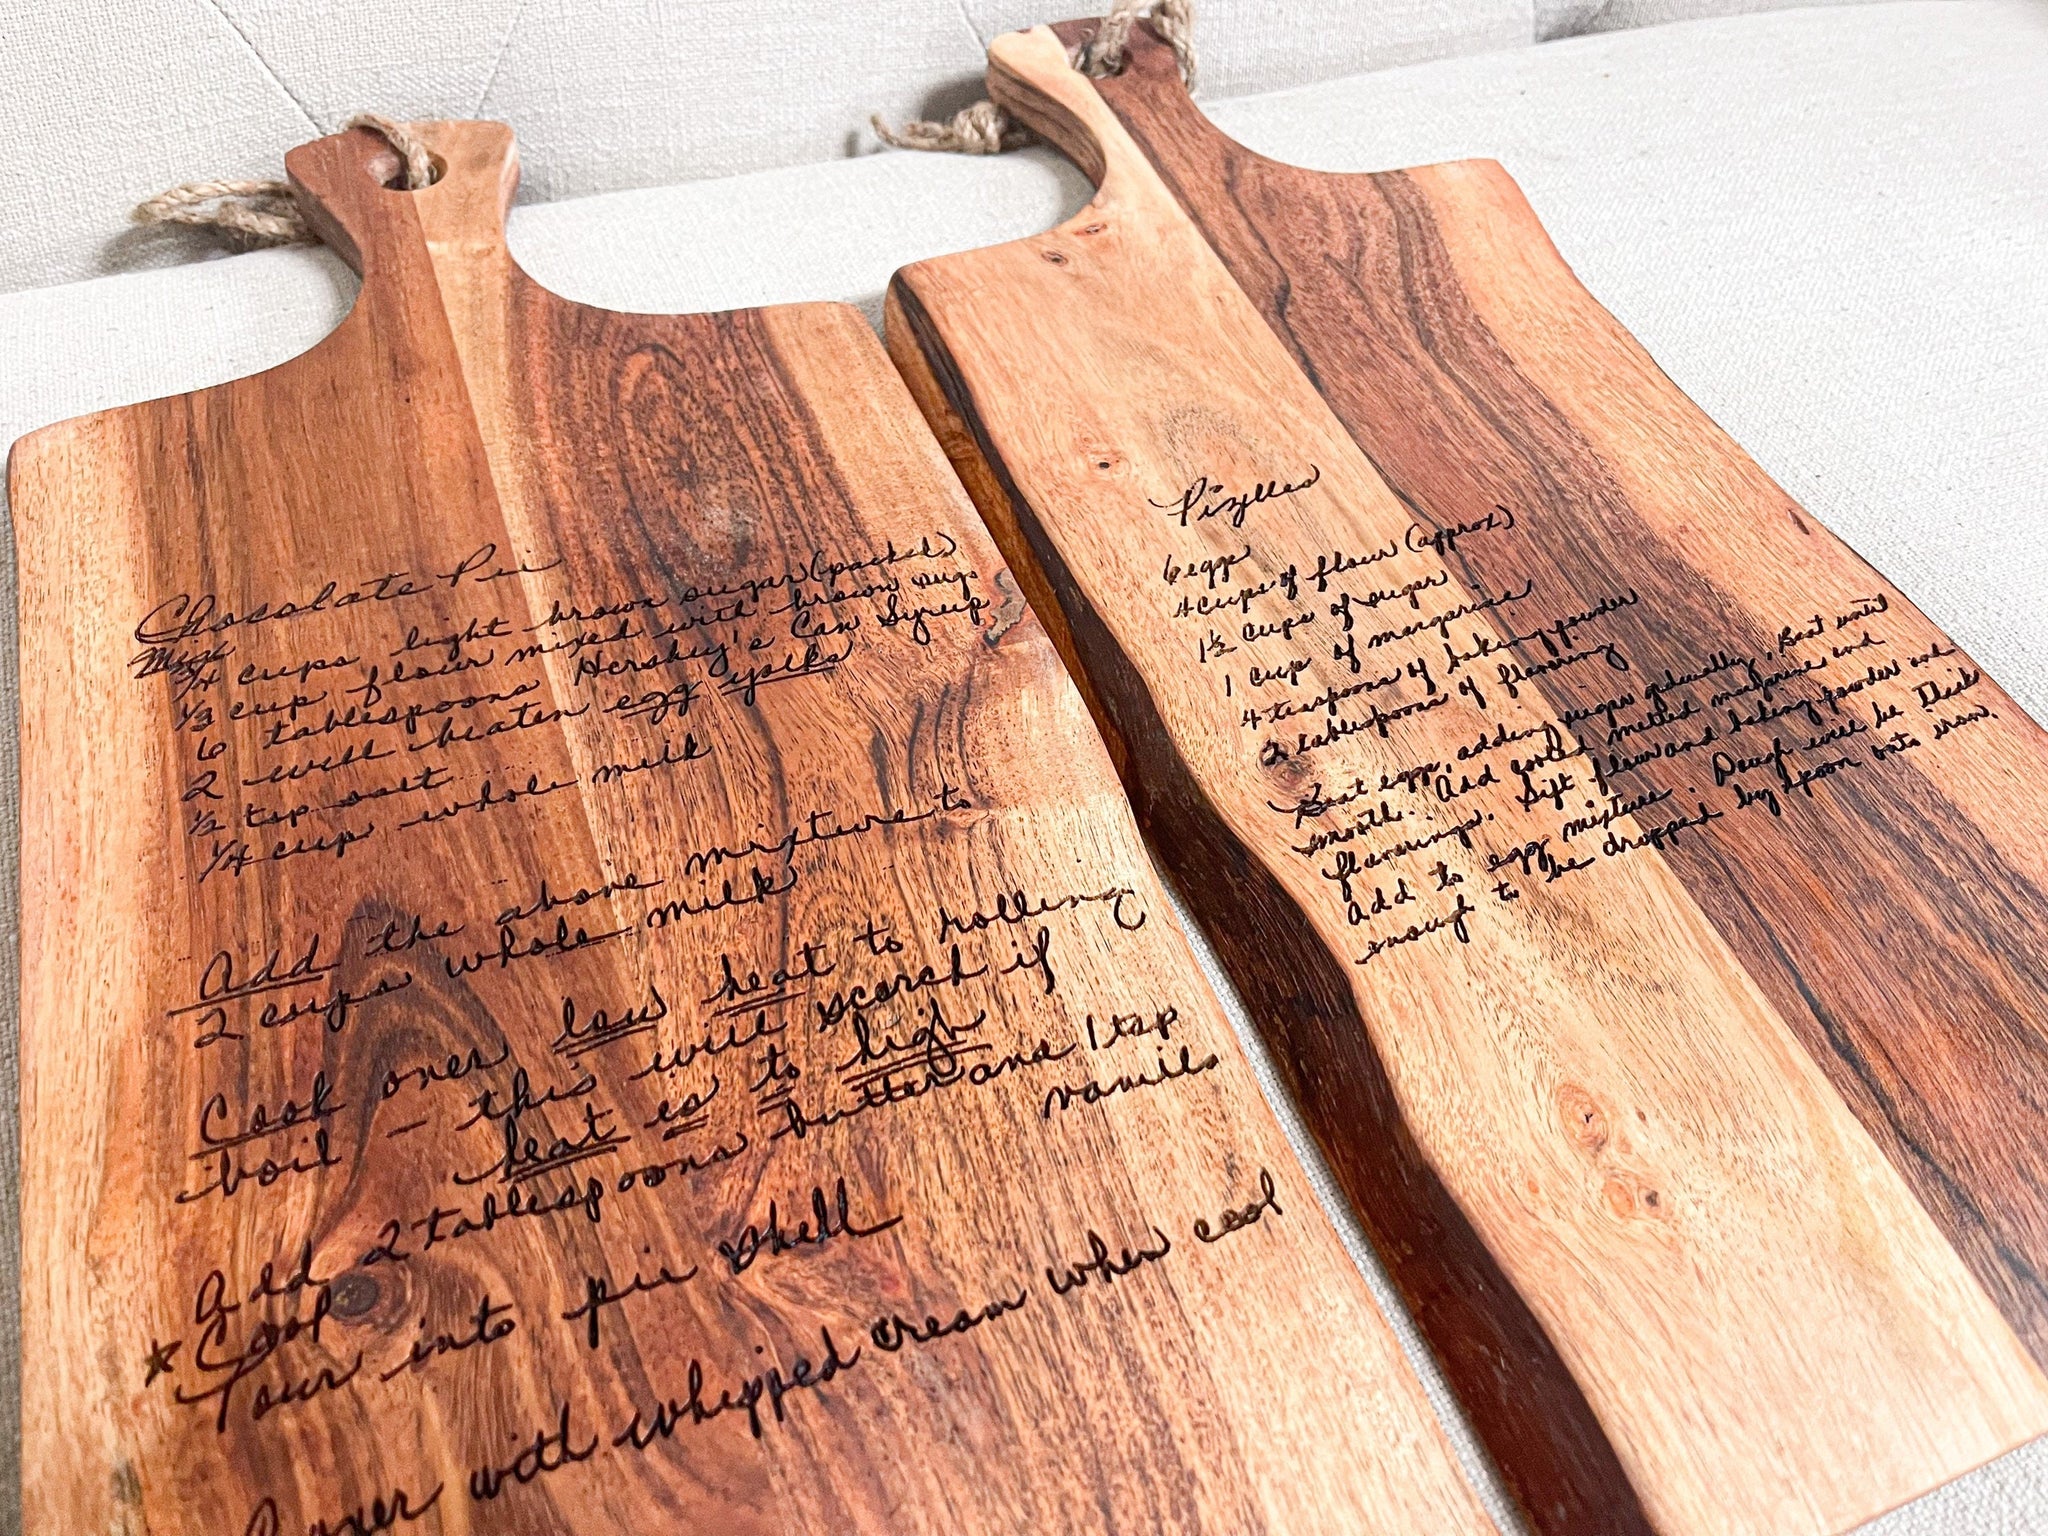 Chocolate Pie
Mix
1/4 cups light brown sugar (packed)
1/3 cup flour mixed with brown sugs
6 tablespoons Hershey's Can Syrup
2 well beaten egg yolks
1/2 tsp salt
1/4 cup whole milk
Add the above mixture to
2 cups whole milk
Cook over low heat to rolling
boil - this will scorch if
heat is to high
Add 2 tablespoons butter and 1 tsp
vanilla
* Cool
Pour into pie shell
Cover with whipped cream when cool
Pizzelles
6 eggs
4 cups of flour (approx)
1 1/2 cups of sugar
1 cup of margarine
4 teaspoons of baking powder
2 tablespoons of flavoring
Beat eggs, adding sugar gradually, Beat until
smooth. Add cooled melted margarine and
flavorings. Sift flour and baking powder and
add to egg mixture. Dough will be thick
enough to be dropped by spoon onto iron.